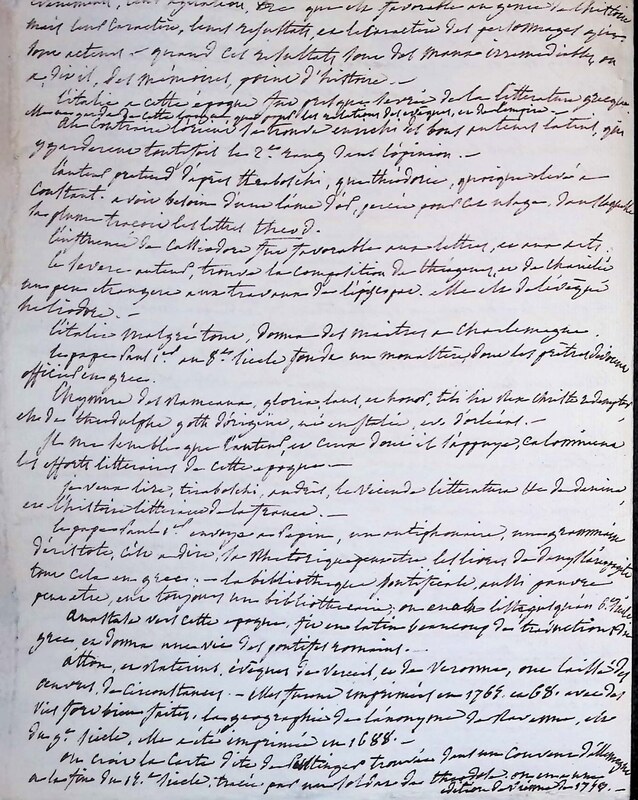 mais leur caractère, leurs résultats, et le caractère des personnages
tous acteurs — quand ces résultats sont des maux irrémédiables, on
a, dit il, des mémoires, point d'histoire. —
L'italie a cette époque fut presque sevrée de la litterature grecque
au contraire l'orient se trouva enrichi des bons auteurs latins, qui
y garderent toutefois le 2e. rang dans l'opinion. —
L'auteur pretend d'après tiraboschi, que théodoric, quoique élevé a
Constant. avoit besoin d'une lame d'or, percée pour cet usage, dans laquelle
sa plume traçoit les lettres theod.
L'influence de Cassiodore fut favorable aux lettres, et aux arts.
le severe auteur, trouve la composition de theagene, et de chariclée
un peu etrangere aux travaux de l'épiscopat. elle est de l'évêque
heliodore. —
L'italie malgré tout, donna des maitres a Charlemagne.
le pape Paul 1er. au 8me siècle fonda un monastère, dont les prêtres
office en grec.
L'hymne des rameaux, gloria, laus, et honor, tibi sit rex christe redemptor
est de theodulphe goth d'origine, né en italie, ev. d'orleans. —
Il me semble que l'auteur, et ceux dont il s'appuye, calomnient
les efforts litteraires de cette epoque. —
je veux lire, tiraboschi, andrès, le vicende litteratura &c de denina
et l'histoire litteraire de la france. —
le pape Paul 1er. envoya a Pepin, un antiphonaire, une grammaire
d'aristote, c'est a dire, sa rhetorique peut etre les livres de denys l'aréopagite
tout cela en grec: — la bibliothèque pontificale, aussi pauvre
peut etre, eut toujours un bibliothecaire, on en a la liste jusqu'au 6e. siècle
anastase vers cette époque, fit en latin beaucoup de traductions du
grec et donna une vie des pontifes romains. —
atton, et ratérius, évêques de Verceil, et de Veronne, ont laissé des
œuvres, de circonstances. — elles furent imprimées en 1765. et 68. avec des
vies fort bien faites. la geographie de l'anonyme de ravenne, est
du 9e. siècle, elle a été imprimée en 1688. —
On croit la carte dite de Peuttinger trouvée dans un couvent d'allemagne
a la fin du 15.e siècle, tracée par un soldat de theodose. on en a une
edition de Vienne de 1753. —